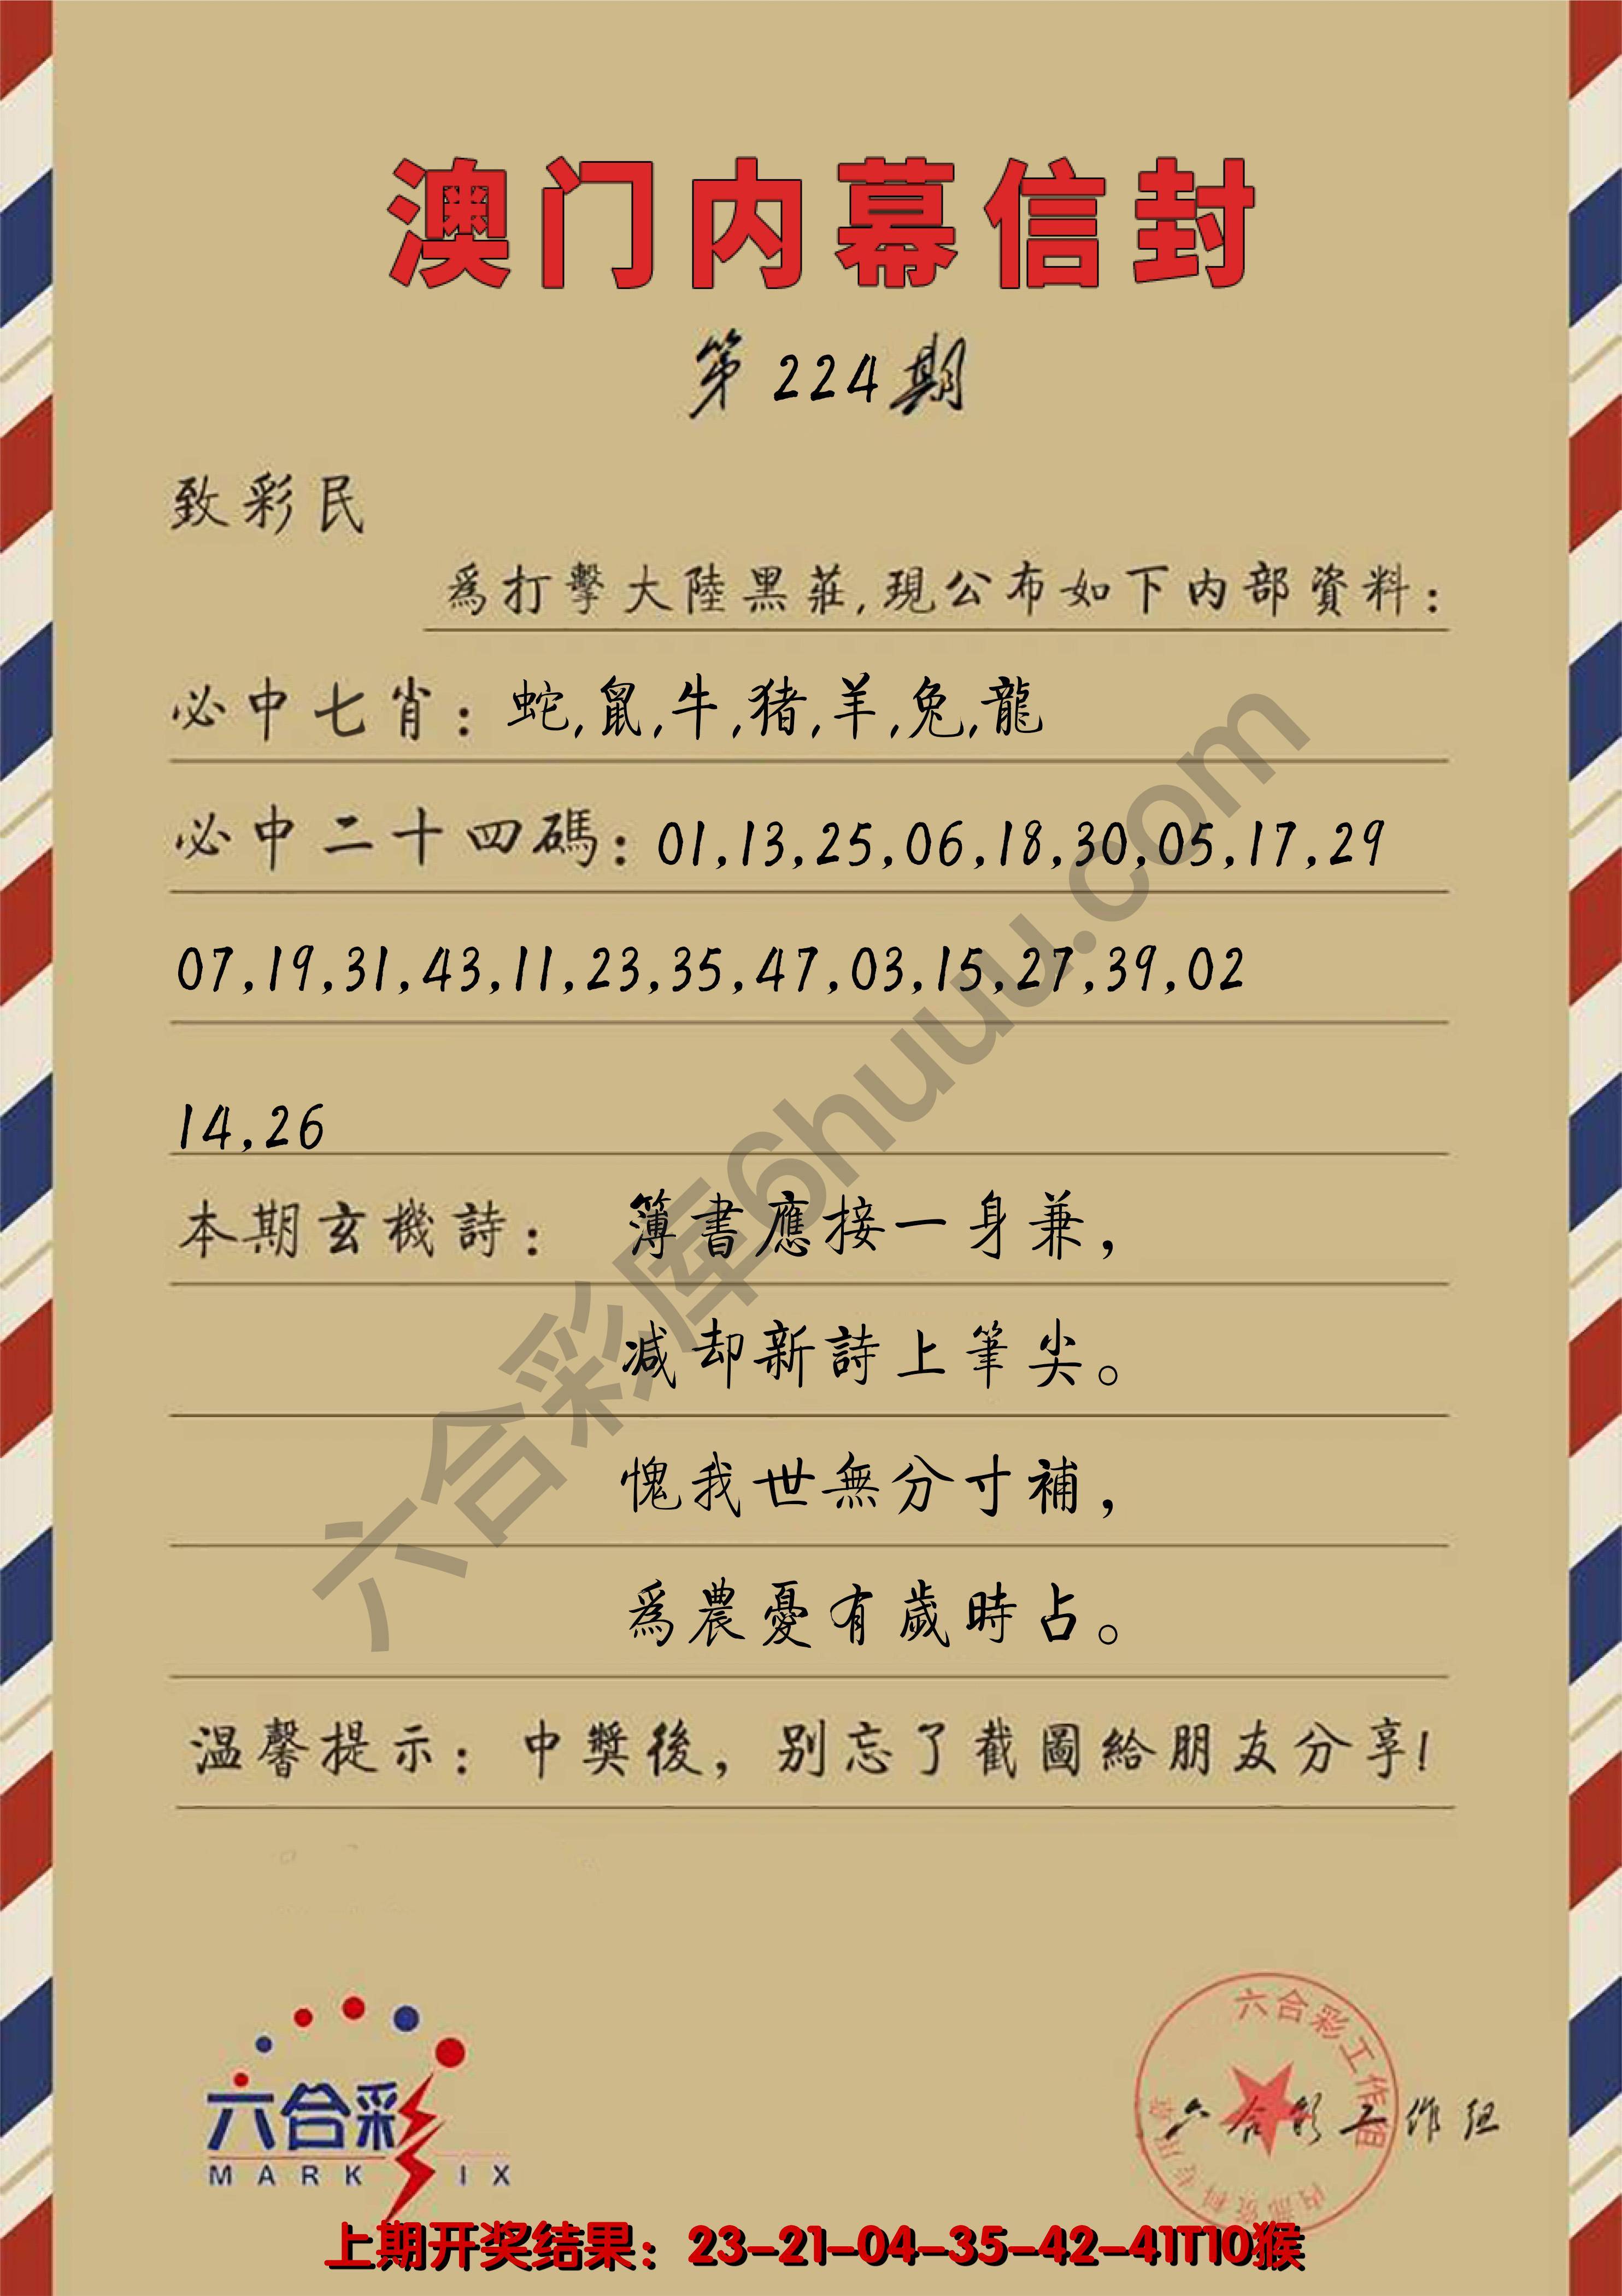 澳门内幕信封
第224期
致彩民
爲打擊大陸黑莊,現公布如下内部資料:
必中七肖:蛇,鼠,牛,猪,羊,兔,龍
必中二十四碼:01,13,25,06,18,30,05,17,29
07,19,31,43,11,23,35,47,03,15,27,39,02
14,26
本期玄機詩: 簿書應接一身兼,
减却新詩上筆尖。
愧我世無分寸補,
爲農憂有歲時占。
温馨提示:中獎後,别忘了截圖給朋友分享!
六合彩库6huuu.com
六合彩
MARK IX
六合彩工作组
内部资料专用章
六合彩工作组
上期开奖结果:23-21-04-35-42-41T10猴